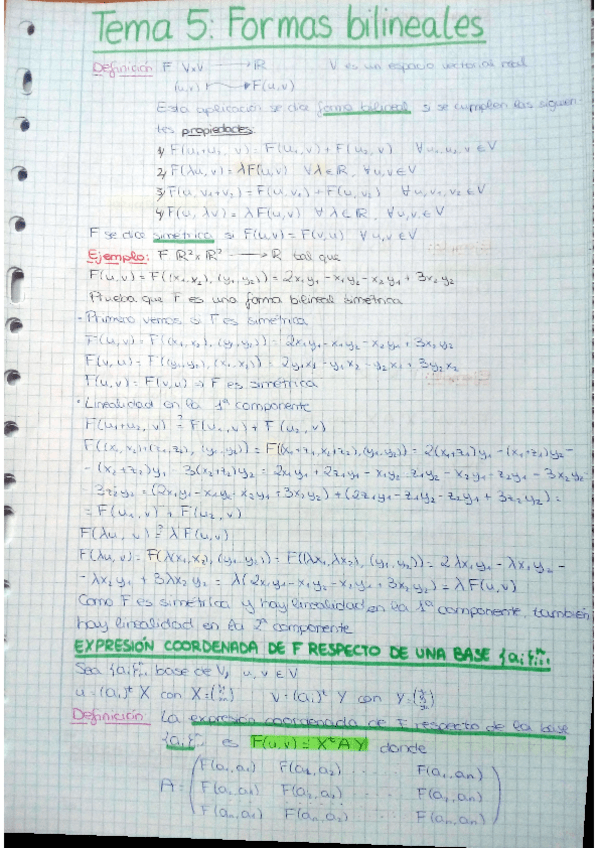 Tema 5: Formas bilineales
Definición F V×V → R V es un espacio vectorial real
(u,v) → F(u,v)
Esta aplicación se dice forma bilineal si se cumplen las siguien-
tes propiedades:
1) F(u₁+u₂, v) = F(u₁, v) + F(u₂, v) ∀u₁, u₂, v ∈ V
2) F(λu, v) = λF(u,v) ∀λ∈R, ∀u,v∈V
3) F(u, v₁+v₂) = F(u,v₁) + F(u,v₂) ∀u,v₁,v₂ ∈ V
4) F(u, λv) = λF(u,v) ∀λ∈R, ∀u,v∈V
F se dice simétrica si F(u,v) = F(v,u) ∀u,v∈V
Ejemplo: F R²×R² → R tal que
F(u,v) = F((x₁,x₂), (y₁,y₂)) = 2x₁y₁ - x₁y₂ - x₂y₁ + 3x₂y₂
Prueba que F es una forma bilineal simétrica
· Primero vemos si F es simétrica
F(u,v) = F((x₁,x₂), (y₁,y₂)) = 2x₁y₁ - x₁y₂ - x₂y₁ + 3x₂y₂
F(v,u) = F((y₁,y₂), (x₁,x₂)) = 2y₁x₁ - y₁x₂ - y₂x₁ + 3y₂x₂
F(u,v) = F(v,u) ⇒ F es simétrica
· Linealidad en la 1ª componente
F(u₁+u₂, v) ≟ F(u₁,v) + F(u₂,v)
F((x₁,x₂)+(z₁,z₂), (y₁,y₂)) = F((x₁+z₁, x₂+z₂), (y₁,y₂)) = 2(x₁+z₁)y₁ - (x₁+z₁)y₂ -
- (x₂+z₂)y₁ + 3(x₂+z₂)y₂ = 2x₁y₁ + 2z₁y₁ - x₁y₂ - z₁y₂ - x₂y₁ - z₂y₁ - 3x₂y₂ -
3z₂y₂ = (2x₁y₁ - x₁y₂ - x₂y₁ + 3x₂y₂) + (2z₁y₁ - z₁y₂ - z₂y₁ + 3z₂y₂) =
= F(u₁,v) + F(u₂,v)
F(λu, v) ≟ λF(u,v)
F(λu, v) = F(λ(x₁,x₂), (y₁,y₂)) = F((λx₁, λx₂), (y₁,y₂)) = 2λx₁y₁ - λx₁y₂ -
- λx₂y₁ + 3λx₂y₂ = λ(2x₁y₁ - x₁y₂ - x₂y₁ + 3x₂y₂) = λF(u,v)
Como F es simétrica y hay linealidad en la 1ª componente, también
hay linealidad en la 2ª componente
EXPRESIÓN COORDENADA DE F RESPECTO DE UNA BASE {aᵢ}ⁿᵢ₌₁
Sea {aᵢ}ⁿᵢ₌₁ base de V, u, v ∈ V
u = (aᵢ)ᵗ X con X = v = (aᵢ)ᵗ Y con Y =
Definición La expresión coordenada de F respecto de la base
{aᵢ} es F(u,v) = XᵗAY donde
F(a₁,a₁) F(a₁,a₂) ..... F(a₁,aₙ)
A = F(a₂,a₁) F(a₂,a₂) ..... F(a₂,aₙ)
F(aₙ,a₁) F(aₙ,a₂) ..... F(aₙ,aₙ)